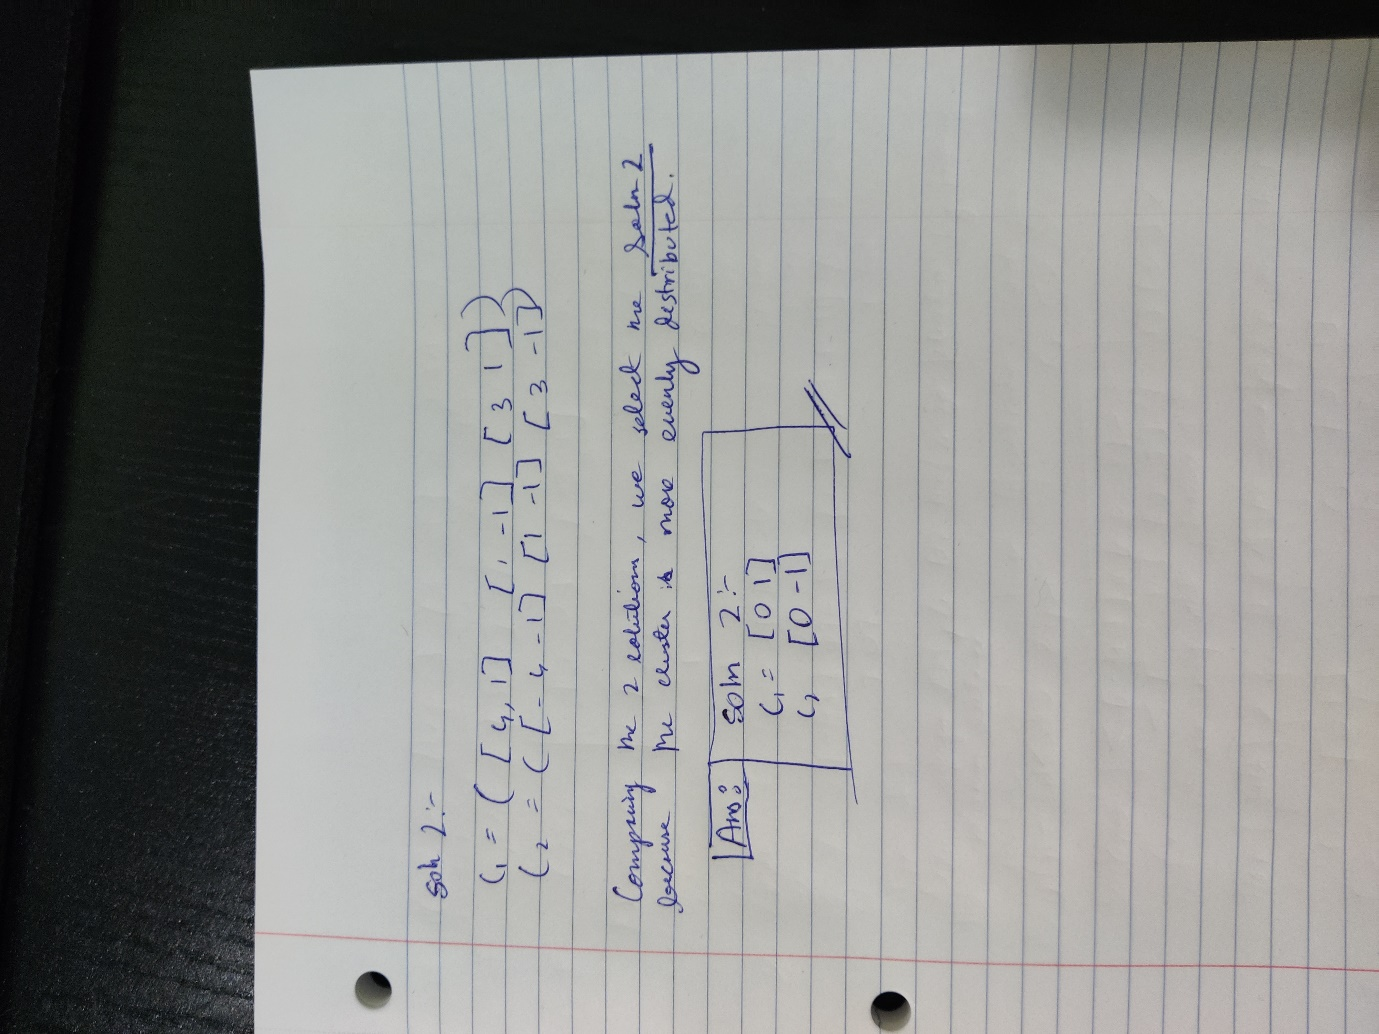 Soln 2:-
C₁ = ( [ 4, 1] [ 1 -1] [ 3 1 ] )
C₂ = ( [ -4 -1] [1 -1] [ 3 -1] )
Comparing the 2 solutions, we select the Soln 2
because the cluster is more evenly distributed.
Ans: Soln 2:-
C₁ = [0 1]
C₂ [0 -1]